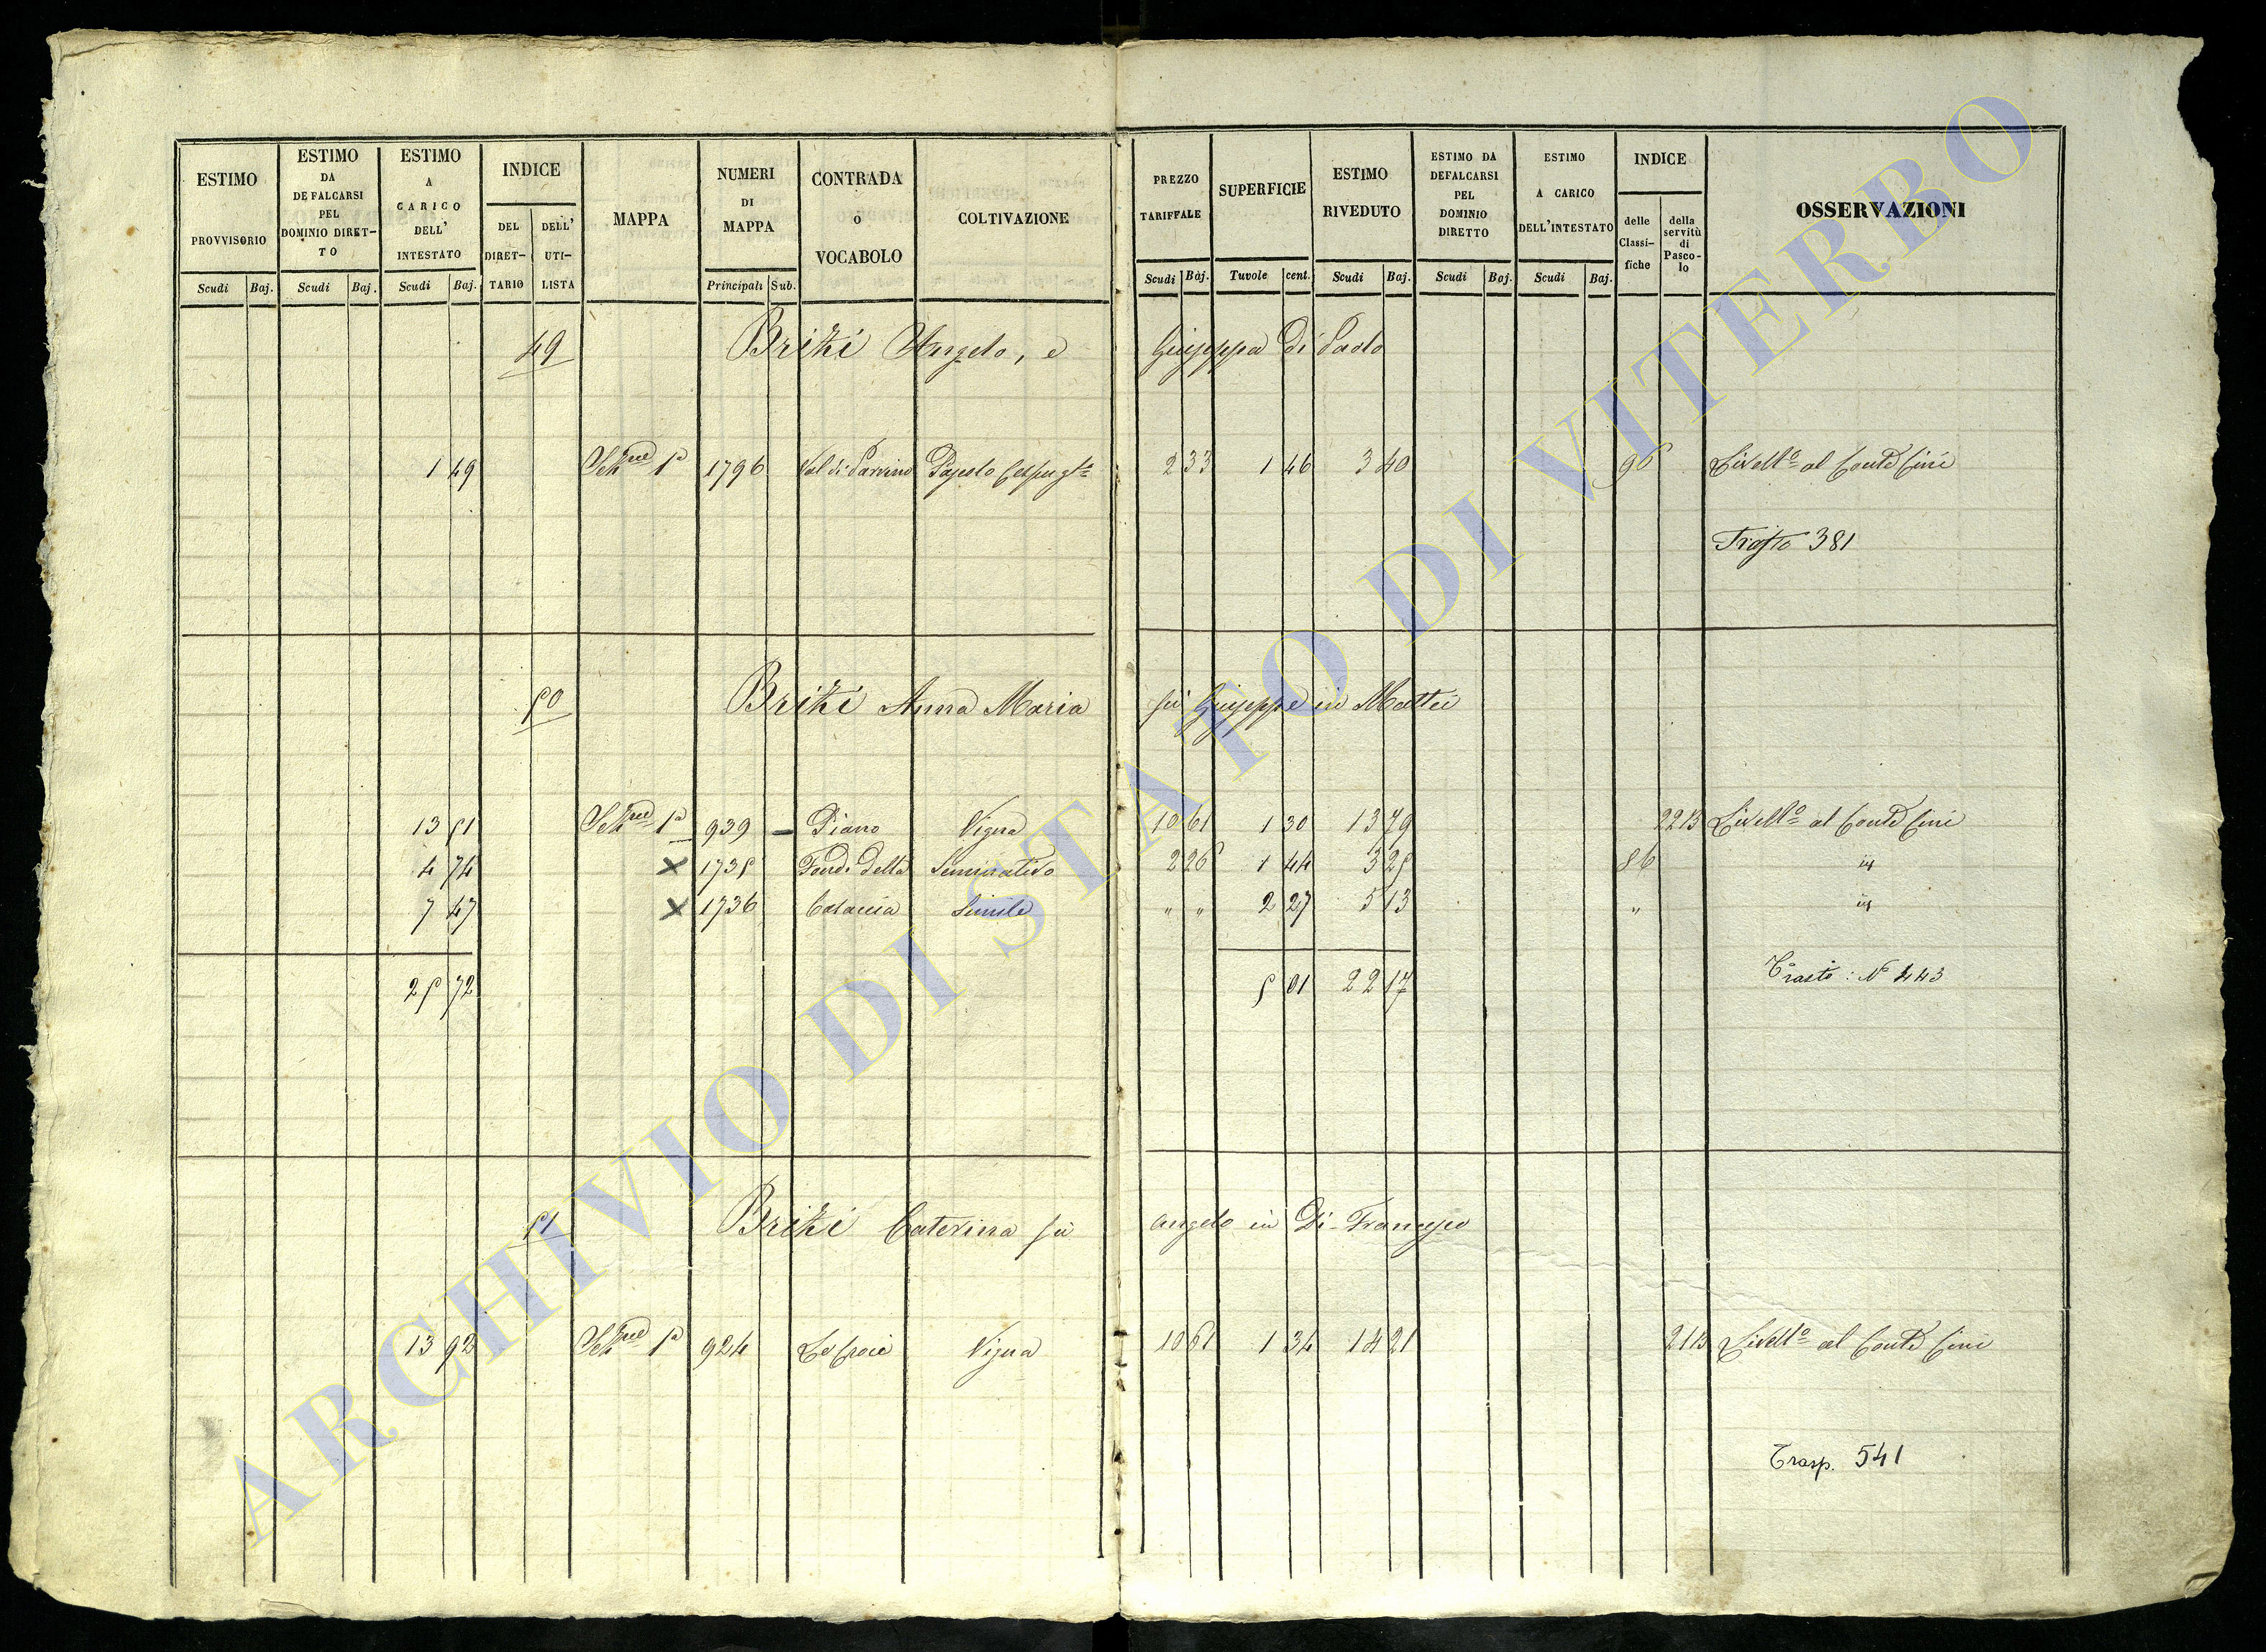 ESTIMO PROVVISORIO Scudi Baj.
ESTIMO DA DEFALCARSI PEL DOMINIO DIRET-TO Scudi Baj.
ESTIMO A CARICO DELL' INTESTATO Scudi Baj.
INDICE DEL DIRET-TARIO DELL' UTI-LISTA
MAPPA
NUMERI DI MAPPA Principali Sub.
CONTRADA o VOCABOLO
COLTIVAZIONE
PREZZO TARIFFALE Scudi Baj.
SUPERFICIE Tavole cent.
ESTIMO RIVEDUTO Scudi Baj.
ESTIMO DA DEFALCARSI PEL DOMINIO DIRETTO Scudi Baj.
ESTIMO A CARICO DELL'INTESTATO Scudi Baj.
INDICE delle Classi-fiche della servitù di Pasco-lo
OSSERVAZIONI
49 Brizi Angelo, e Giuseppa Di Paolo
1 49 1ª 1796 Val di Pascolo 2 33 1 46 3 40 96 Livellº al Conte Cini
381
50 Brizi Anna Maria fu Giuseppe in Mattei
13 51 1ª 939 Piano Vigna 10 61 1 30 13 79 2213 Livellº al Conte Cini
4 74 X 1735 della Seminativo 2 26 1 44 3 25 86
7 47 X 1736 Simile " " 2 27 5 13 "
25 72 5 01 22 17
Trasto : Nº 443
51 Brizi Caterina fu Angelo in Di-Francesco
13 92 1ª 924 Vigna 10 61 1 34 14 21 2113 Livellº al Conte Cini
Trasp. 541
ARCHIVIO DI STATO DI VITERBO